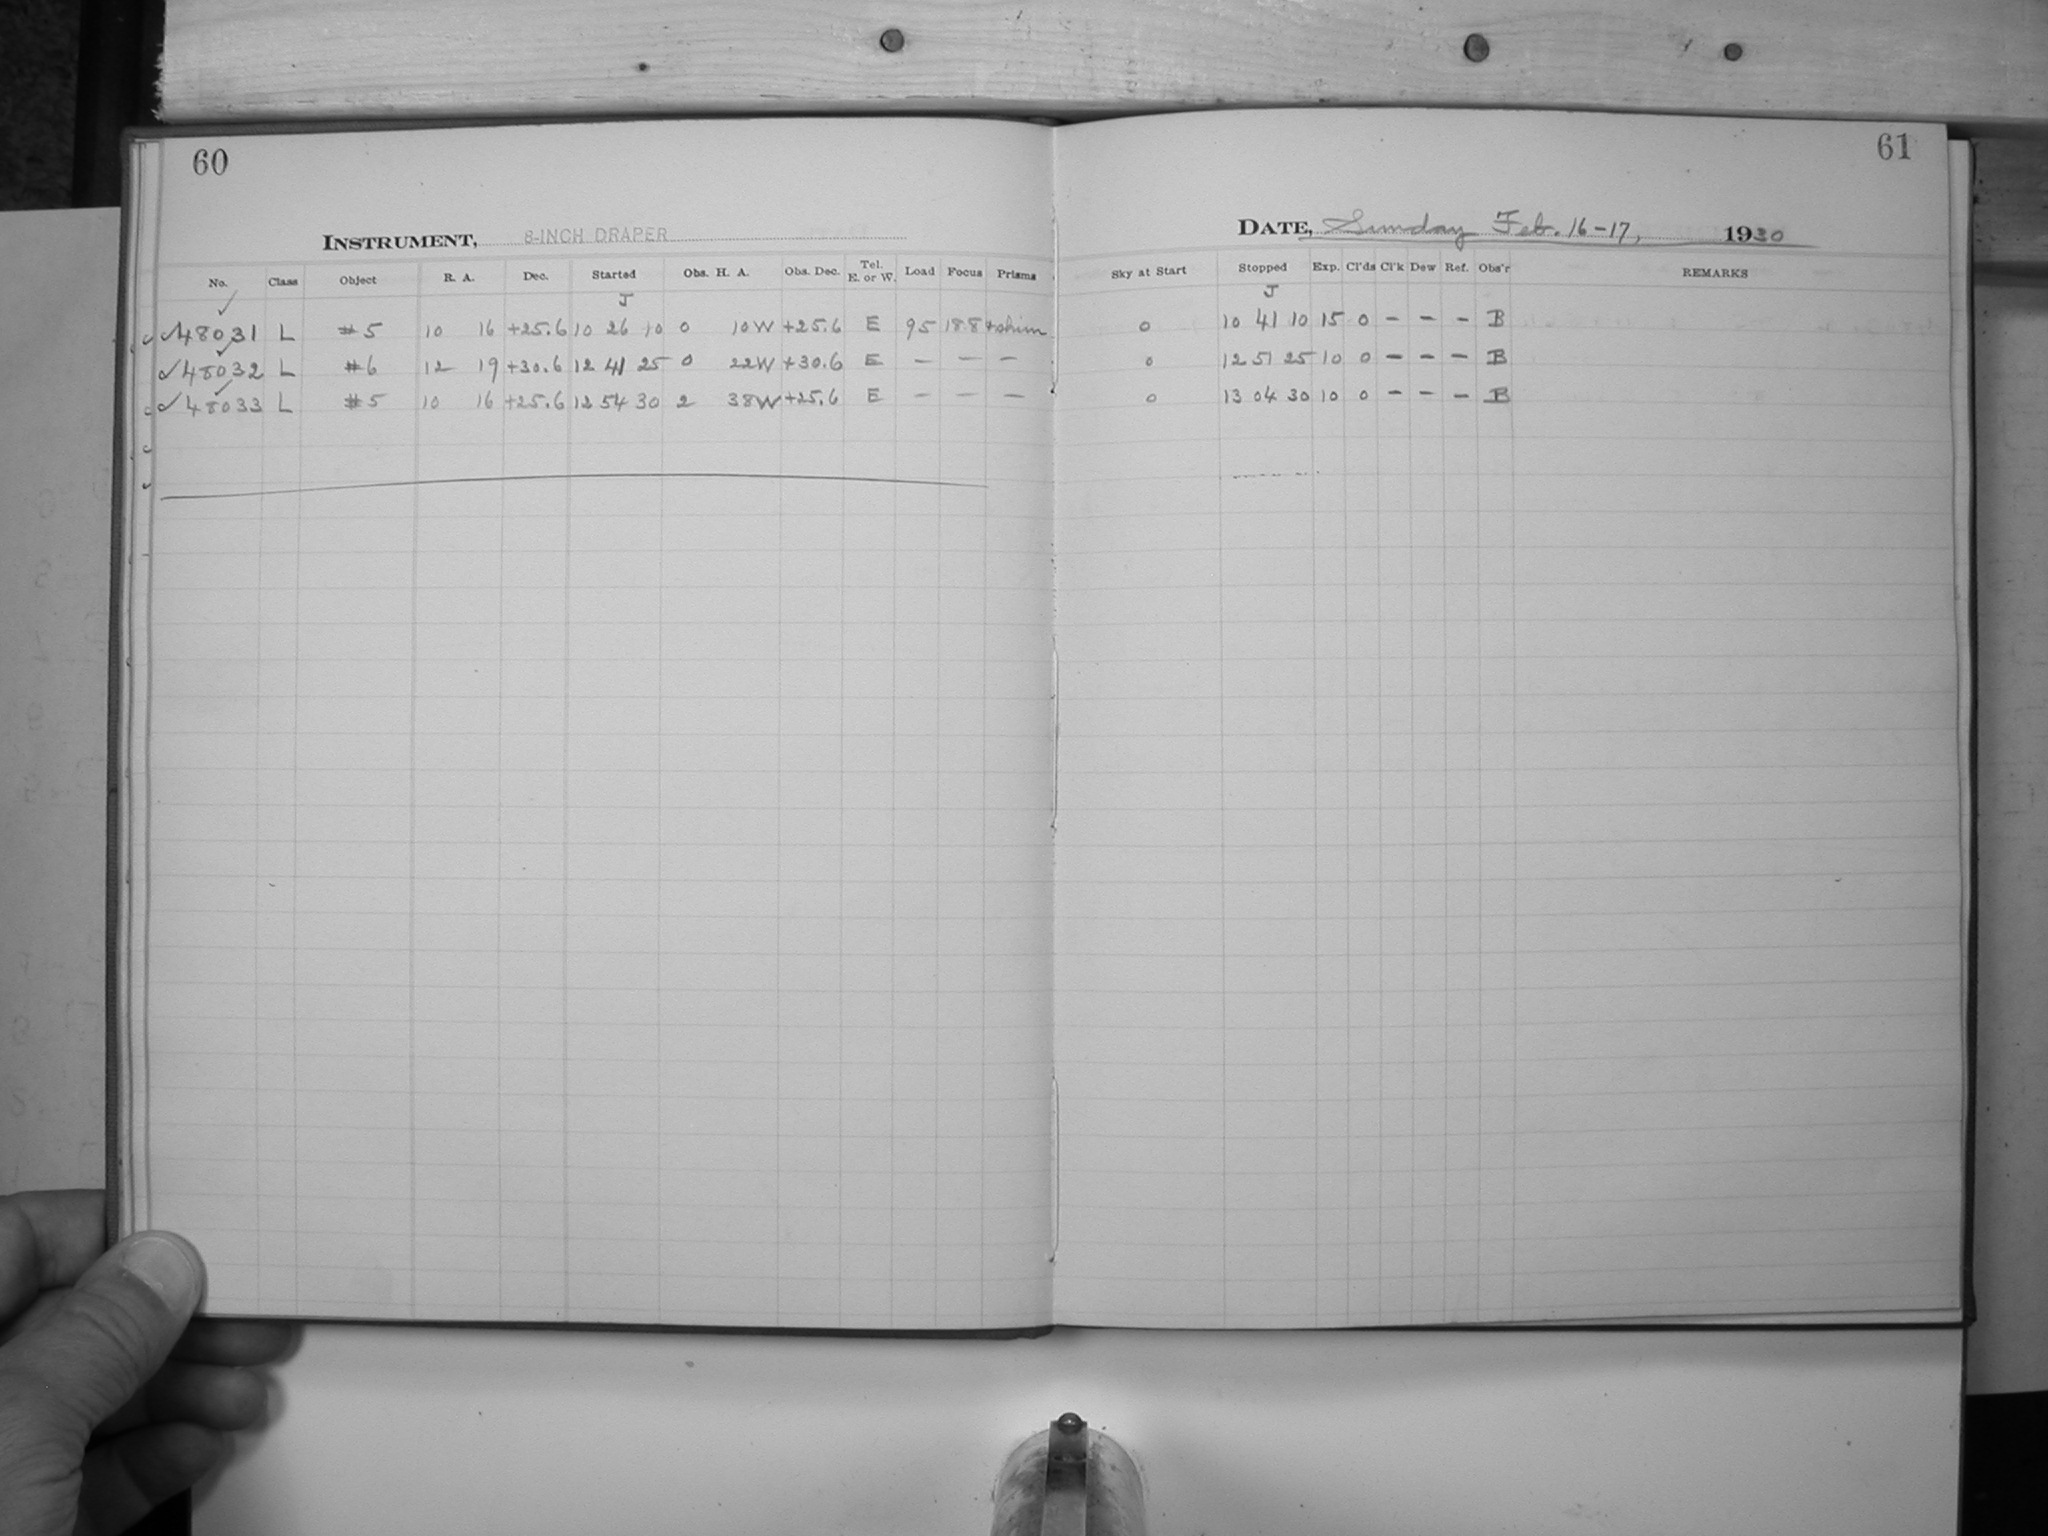 60
INSTRUMENT, 8-INCH DRAPER
No. Class Object R. A. Dec. Started Obs. H. A. Obs. Dec. Tel. E. or W. Load Focus Prisms
J
✓48031 L #5 10 16 +25.6 10 26 10 0 10W +25.6 E 95 188 +shim
✓48032 L #6 12 19 +30.6 12 41 25 0 22W +30.6 E — — —
✓48033 L #5 10 16 +25.6 12 54 30 2 38W +25.6 E — — —
61
DATE, Sunday Feb. 16-17, 1930
Sky at Start Stopped Exp. Cl'ds Cl'k Dew Ref. Obs'r REMARKS
J
0 10 41 10 15 0 - - - B
0 12 51 25 10 0 - - - B
0 13 04 30 10 0 - - - B